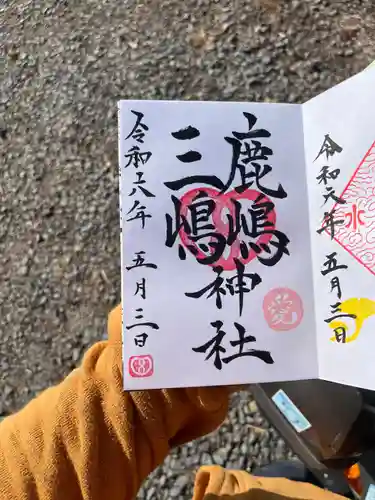 水
令和元年 五月三日
鹿嶋
三嶋
神社
愛
令和元年 五月三日